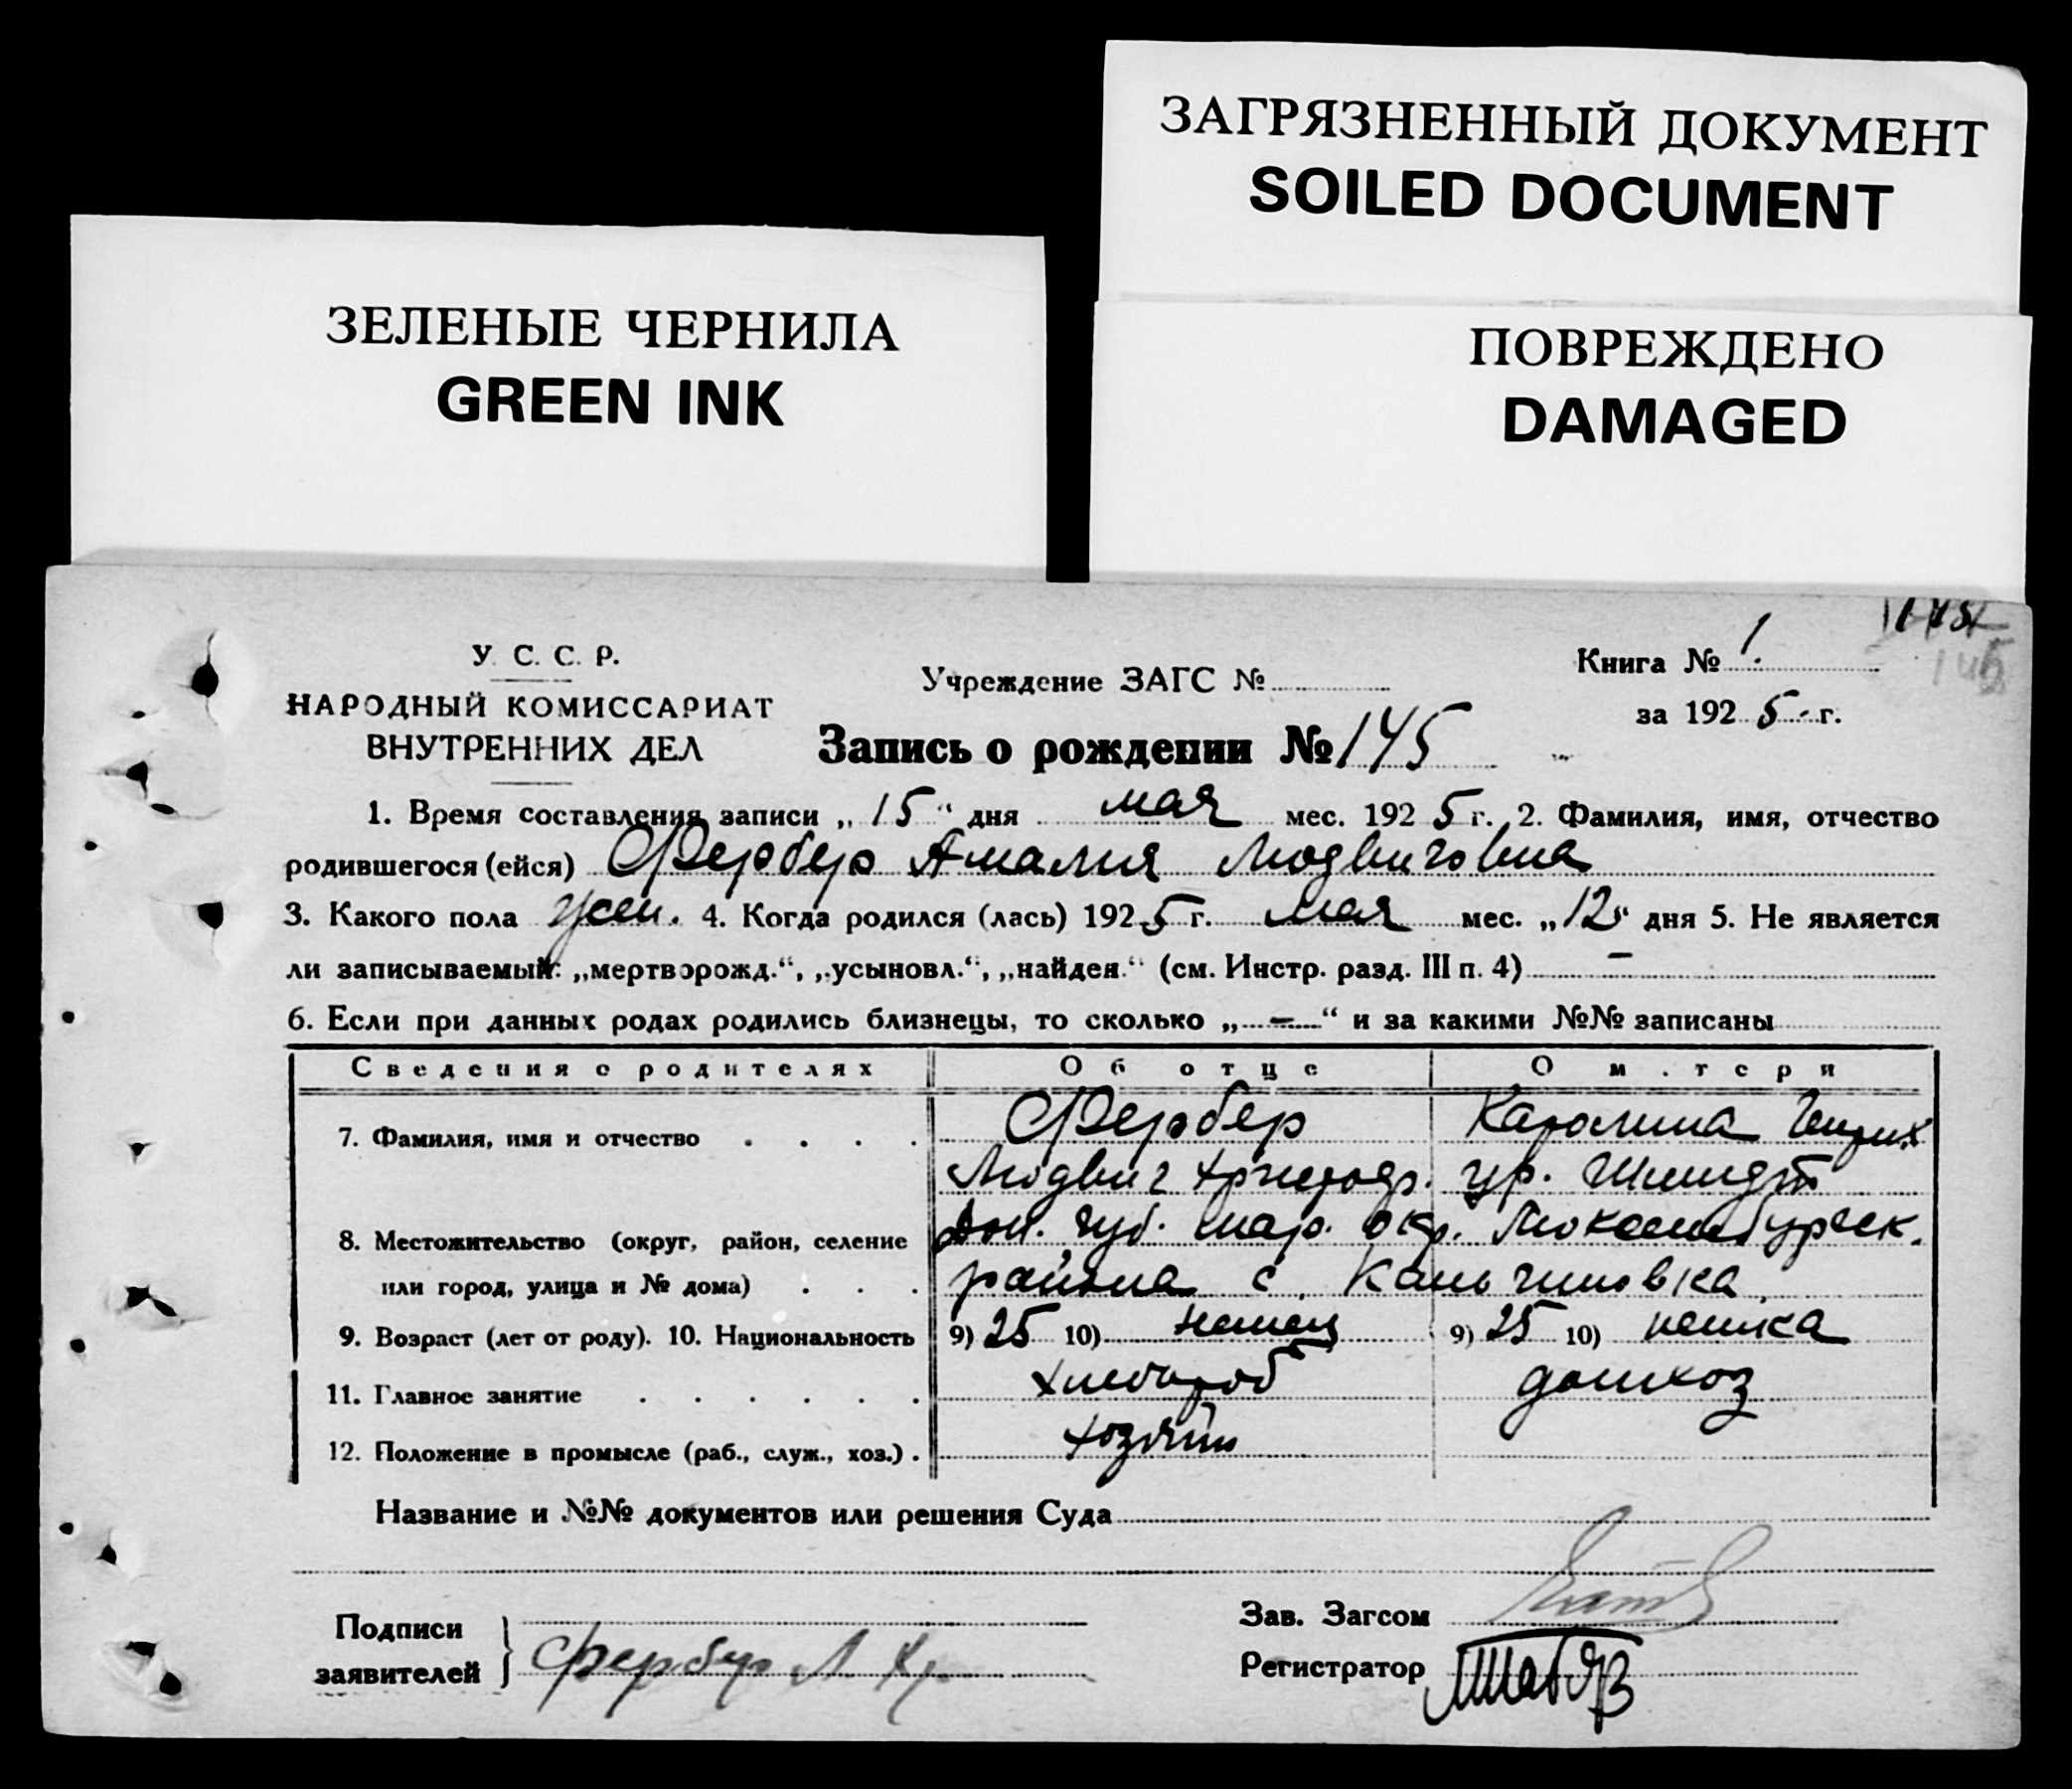 ЗАГРЯЗНЕННЫЙ ДОКУМЕНТ
SOILED DOCUMENT
ЗЕЛЕНЫЕ ЧЕРНИЛА
GREEN INK
ПОВРЕЖДЕНО
DAMAGED
У. С. С. Р.
НАРОДНЫЙ КОМИССАРИАТ
ВНУТРЕННИХ ДЕЛ
Учреждение ЗАГС №
Книга № 1.
за 1925 г.
145
Запись о рождении № 145
1. Время составления записи „15“ дня мая мес. 1925 г. 2. Фамилия, имя, отчество
родившегося (ейся) Фербер Амалия Людвиговна
3. Какого пола жен. 4. Когда родился (лась) 1925 г. мая мес. „12“ дня 5. Не является
ли записываемый: „мертворожд.“, „усыновл.“, „найден.“ (см. Инстр. разд. III п. 4) –
6. Если при данных родах родились близнецы, то сколько „–“ и за какими №№ записаны
Сведения о родителях Об отце О матери
7. Фамилия, имя и отчество Фербер Каролина Генрих
Людвиг ур. Шмидт
8. Местожительство (округ, район, селение Дон. губ. мар. окр. Люксембургск.
или город, улица и № дома) района с. Кальчиновка
9. Возраст (лет от роду). 10. Национальность 9) 25 10) немец 9) 25 10) немка
11. Главное занятие хлебороб домхоз
12. Положение в промысле (раб., служ., хоз.) хозяин
Название и №№ документов или решения Суда
Подписи
заявителей Фербер Л Хр
Зав. Загсом
Регистратор